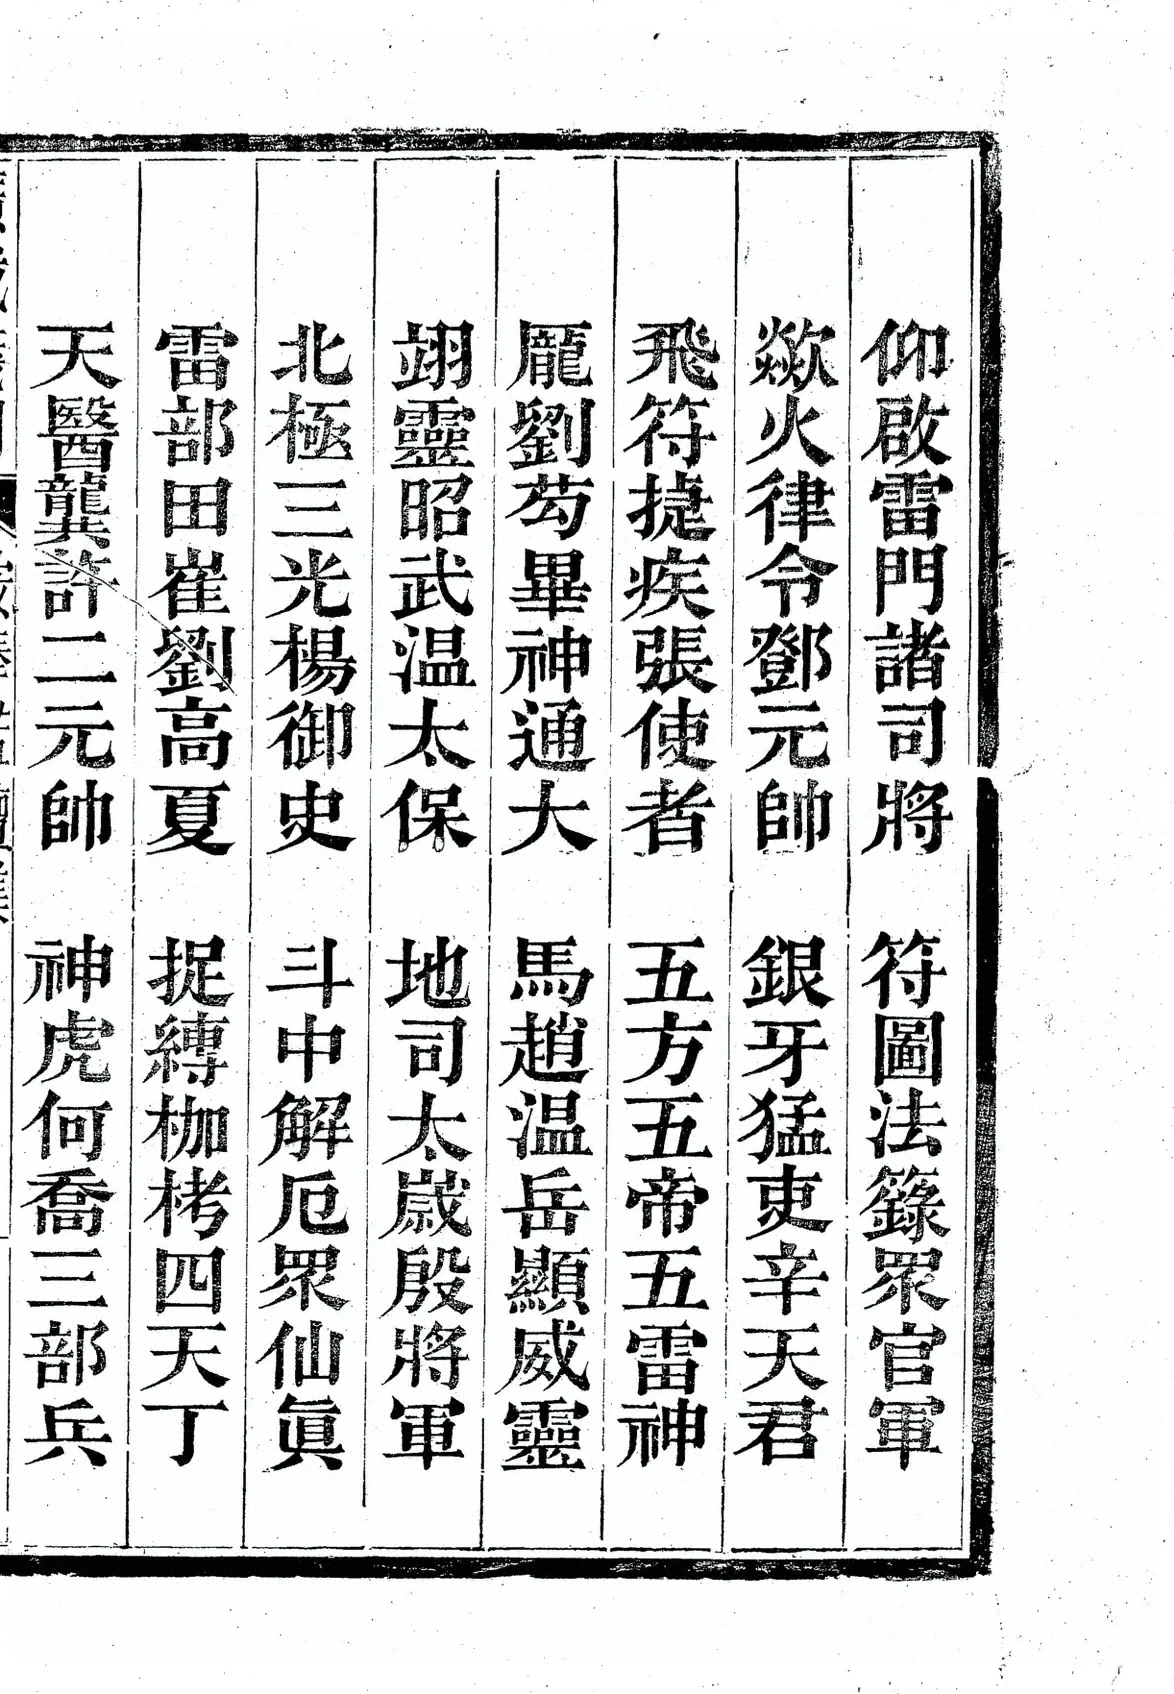 仰啟雷門諸司將　符圖法籙眾官軍
歘火律令鄧元帥　銀牙猛吏辛天君
飛符捷疾張使者　五方五帝五雷神
龎劉芶畢神通大　馬趙温岳顯威靈
翊靈昭武温太保　地司太歲殷將軍
北極三光楊御史　斗中解厄眾仙眞
雷部田崔劉高夏　捉縛枷栲四天丁
天醫龔許二元帥　神虎何喬三部兵